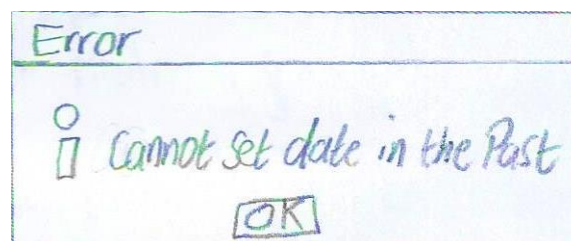 Error
Cannot set date in the Past
OK